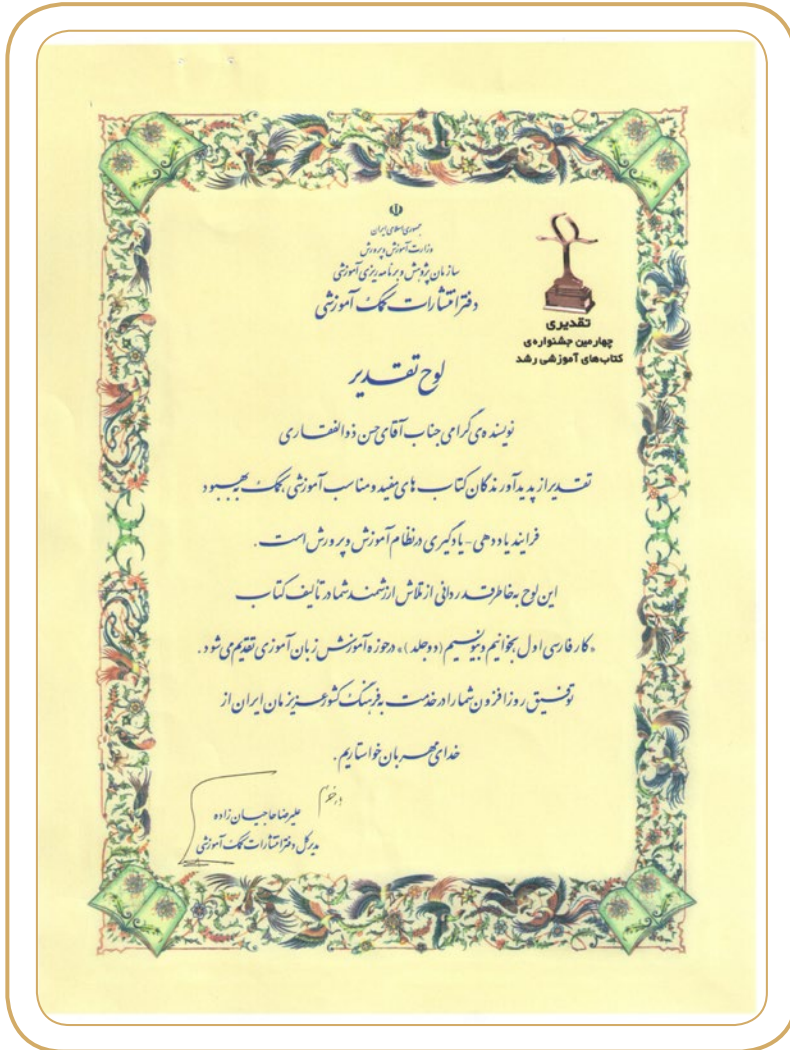 جمهوری اسلامی ایران
وزارت آموزش و پرورش
سازمان پژوهش و برنامه ریزی آموزشی
دفتر انتشارات کمک آموزشی
تقدیری
چهارمین جشنواره‌ی
کتاب‌های آموزشی رشد
لوح تقدیر
نویسنده ی گرامی جناب آقای حسن ذوالفقاری
تقدیر از پدیدآورندگان کتاب های مفید و مناسب آموزشی، کمک به بهبود
فرایند یاددهی - یادگیری در نظام آموزش و پرورش است.
این لوح به خاطر قدردانی از تلاش ارزشمند شما در تألیف کتاب
«کار فارسی اول بخوانیم و بنویسیم (دو جلد)» در حوزه آموزش زبان آموزی تقدیم می شود.
توفیق روز افزون شما را در خدمت به فرهنگ کشور عزیزمان ایران از
خدای مهربان خواستاریم.
علیرضا حاجیان زاده
مدیرکل دفتر انتشارات کمک آموزشی